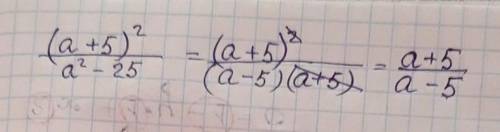 (a+5)² / a² - 25 = (a+5)² / (a-5)(a+5) = a+5 / a-5